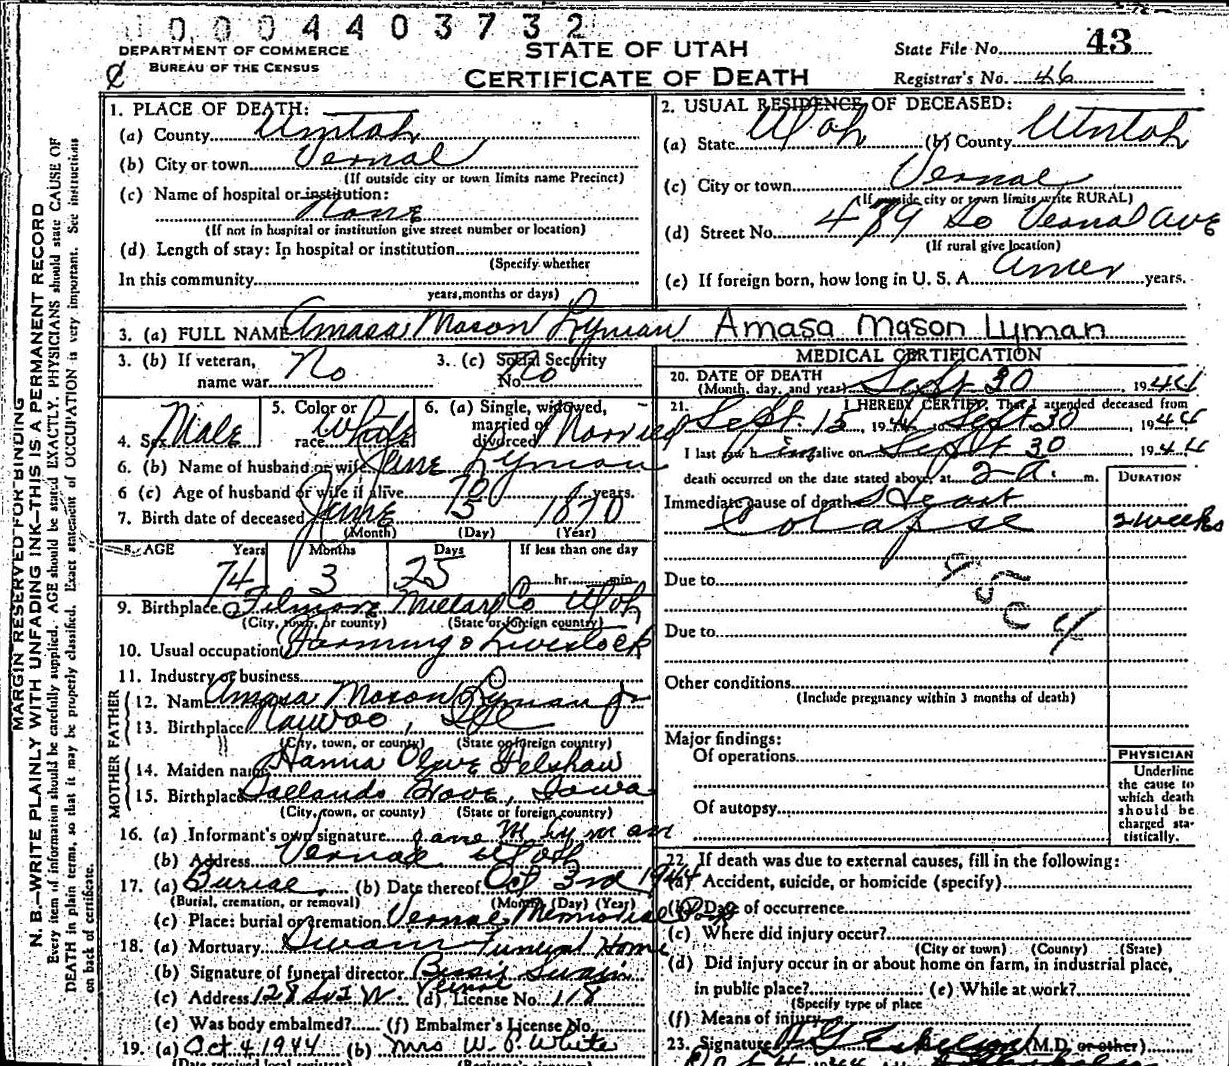 0004403732
DEPARTMENT OF COMMERCE
BUREAU OF THE CENSUS
STATE OF UTAH
CERTIFICATE OF DEATH
State File No. 43
Registrar's No. 46
1. PLACE OF DEATH:
(a) County Uintah
(b) City or town Vernal
(If outside city or town limits name Precinct)
(c) Name of hospital or institution:
None
(If not in hospital or institution give street number or location)
(d) Length of stay: In hospital or institution
(Specify whether
In this community
years, months or days)
2. USUAL RESIDENCE OF DECEASED:
(a) State Utah (b) County Uintah
(c) City or town Vernal
(If outside city or town limits write RURAL)
(d) Street No. 479 So Vernal Ave
(If rural give location)
(e) If foreign born, how long in U. S. A. Amer years.
3. (a) FULL NAME Amasa Mason Lyman Amasa Mason Lyman
3. (b) If veteran, name war No
3. (c) Social Security No. No
4. Sex Male
5. Color or race White
6. (a) Single, widowed, married or divorced Married
6. (b) Name of husband or wife Jane Lyman
6 (c) Age of husband or wife if alive 70 years.
7. Birth date of deceased June 5 1870
(Month) (Day) (Year)
8. AGE Years Months Days If less than one day
74 3 25 hr. min.
9. Birthplace Filmore Millard Co Utah
(City, town, or county) (State or foreign country)
10. Usual occupation Farming & Livestock
11. Industry or business
FATHER
12. Name Amasa Mason Lyman Jr
13. Birthplace Nauvoo, Ill
(City, town, or county) (State or foreign country)
MOTHER
14. Maiden name Hanna Olive Felshaw
15. Birthplace Iowa
(City, town, or county) (State or foreign country)
16. (a) Informant's own signature Jane M Lyman
(b) Address Vernal Utah
17. (a) Burial (b) Date thereof Oct 3rd 1944
(Burial, cremation, or removal) (Month) (Day) (Year)
(c) Place: burial or cremation Vernal Memorial Park
18. (a) Mortuary Swain Funeral Home
(b) Signature of funeral director Bessie Swain
Vernal
(c) Address 128 So 2 W. (d) License No. 118
(e) Was body embalmed? (f) Embalmer's License No.
19. (a) Oct 4 1944 (b) Mrs W. P. White
(Date received local registrar) (Registrar's signature)
MEDICAL CERTIFICATION
20. DATE OF DEATH
(Month, day, and year) Sept 30, 1944
21. I HEREBY CERTIFY, That I attended deceased from
Sept. 15, 1944 to Sept 30, 1944
I last saw him alive on Sept 30 1944
death occurred on the date stated above, at 2 a. m.
DURATION
Immediate cause of death Heart
Colapse 2 weeks
Due to
Due to
Other conditions
(Include pregnancy within 3 months of death)
Major findings:
Of operations
Of autopsy
PHYSICIAN
Underline
the cause to
which death
should be
charged sta-
tistically.
22. If death was due to external causes, fill in the following:
(a) Accident, suicide, or homicide (specify)
(b) Date of occurrence
(c) Where did injury occur?
(City or town) (County) (State)
(d) Did injury occur in or about home on farm, in industrial place,
in public place? (e) While at work?
(Specify type of place
(f) Means of injury
23. Signature (M.D. or other)
MARGIN RESERVED FOR BINDING
N. B.—WRITE PLAINLY WITH UNFADING INK—THIS IS A PERMANENT RECORD
Every item of information should be carefully supplied. AGE should be stated EXACTLY. PHYSICIANS should state CAUSE OF
DEATH in plain terms, so that it may be properly classified. Exact statement of OCCUPATION is very important. See instructions
on back of certificate.